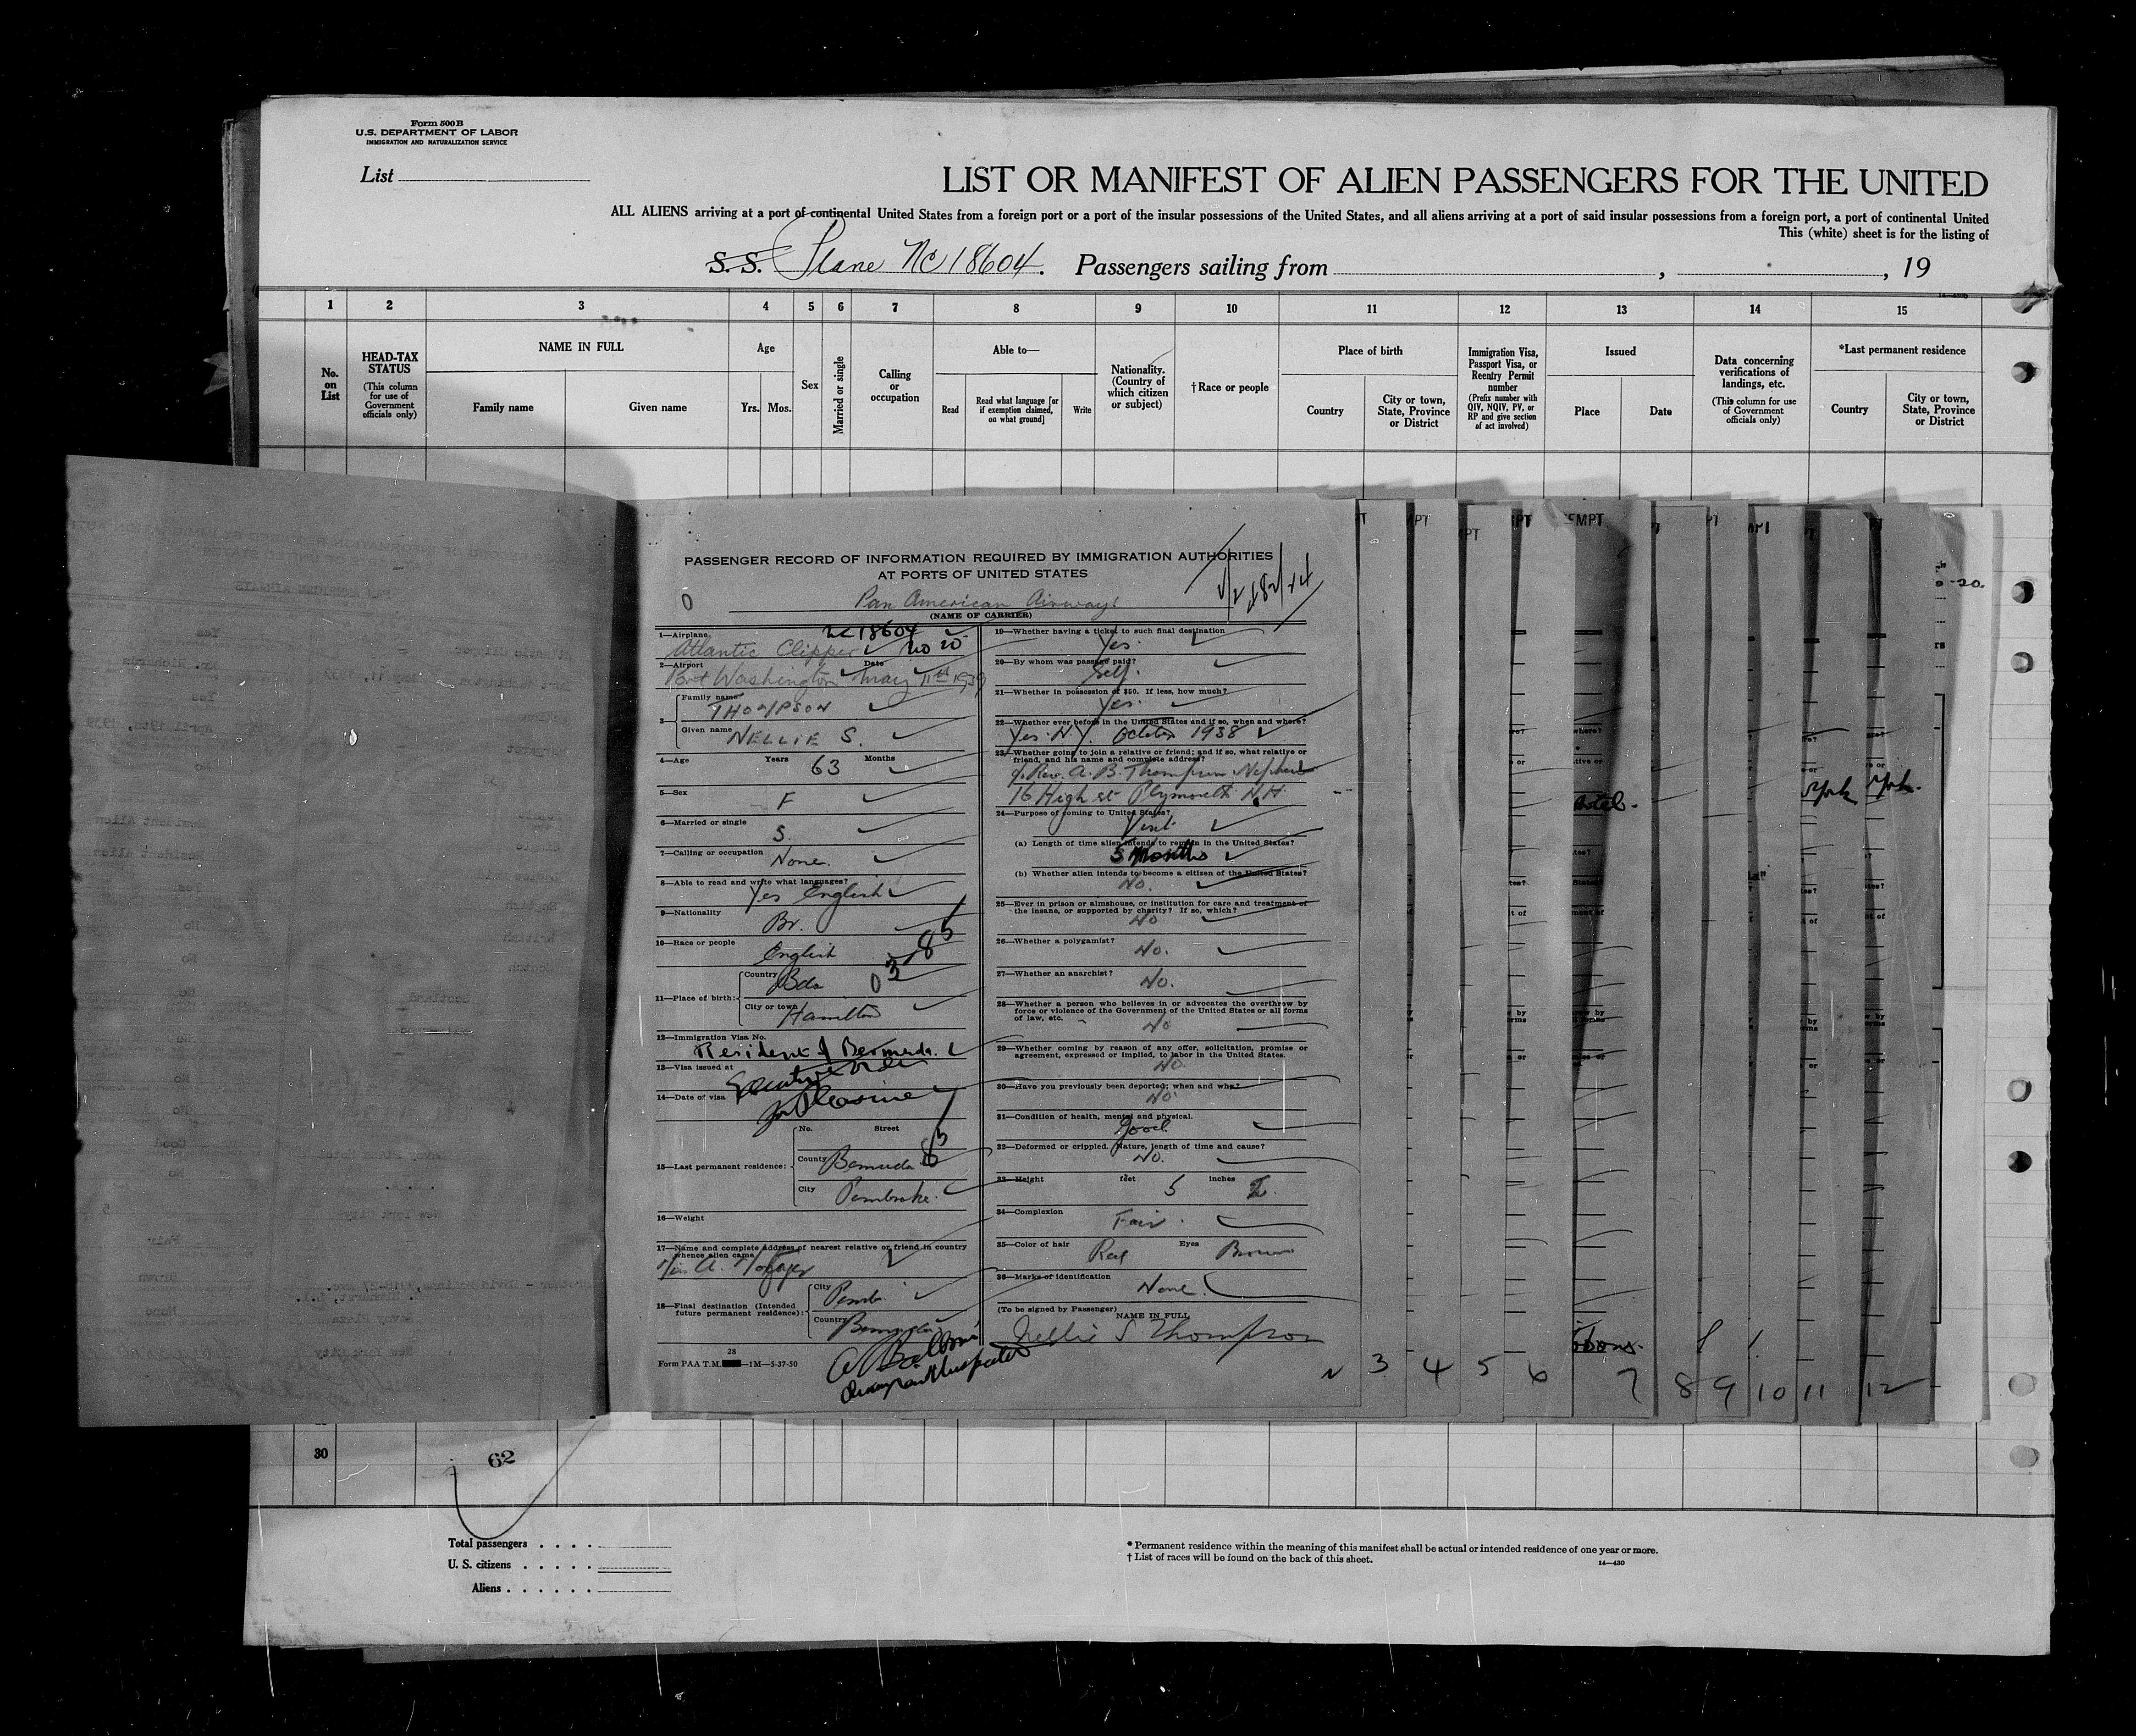 Form 500B
U.S. DEPARTMENT OF LABOR
IMMIGRATION AND NATURALIZATION SERVICE
List
LIST OR MANIFEST OF ALIEN PASSENGERS FOR THE UNITED
ALL ALIENS arriving at a port of continental United States from a foreign port or a port of the insular possessions of the United States, and all aliens arriving at a port of said insular possessions from a foreign port, a port of continental United
This (white) sheet is for the listing of
S.S. Plane NC 18604. Passengers sailing from , , 19
1 2 3 4 5 6 7 8 9 10 11 12 13 14 15
No. on List
HEAD-TAX STATUS
(This column for use of Government officials only)
NAME IN FULL
Family name
Given name
Age
Yrs. Mos.
Sex
Married or single
Calling or occupation
Able to—
Read
Read what language [or if exemption claimed, on what ground]
Write
Nationality. (Country of which citizen or subject)
†Race or people
Place of birth
Country
City or town, State, Province or District
Immigration Visa, Passport Visa, or Reentry Permit number
(Prefix number with QIV, NQIV, PV, or RP and give section of act involved)
Issued
Place
Date
Data concerning verifications of landings, etc.
(This column for use of Government officials only)
*Last permanent residence
Country
City or town, State, Province or District
PASSENGER RECORD OF INFORMATION REQUIRED BY IMMIGRATION AUTHORITIES
AT PORTS OF UNITED STATES
0
Pan American Airways
(NAME OF CARRIER)
1—Airplane NC 18604
Atlantic Clipper No 20
2—Airport Date
Port Washington May 11th 1939
3—
Family name THOMPSON
Given name NELLIE S.
4—Age Years 63 Months
5—Sex F
6—Married or single S.
7—Calling or occupation None.
8—Able to read and write what languages?
Yes English
9—Nationality Br.
10—Race or people English
03-85
11—Place of birth:
Country Bda
City or town Hamilton
12—Immigration Visa No.
Resident of Bermuda.
13—Visa issued at
Executive Order
14—Date of visa
for Pleasure
15—Last permanent residence:
No. Street
County Bermuda 85
City Pembroke.
16—Weight
17—Name and complete address of nearest relative or friend in country whence alien came
18—Final destination (Intended future permanent residence):
City Pemb.
Country Bermuda
28
Form PAA T.M. —1M—5-37-50
19—Whether having a ticket to such final destination
Yes.
20—By whom was passage paid?
Self.
21—Whether in possession of $50. If less, how much?
Yes.
22—Whether ever before in the United States and if so, when and where?
Yes. N.Y. October 1938
23—Whether going to join a relative or friend; and if so, what relative or friend, and his name and complete address?
c/o Rev. A. B. Thompson Nephew
16 High st Plymouth N.H.
24—Purpose of coming to United States?
Visit
(a) Length of time alien intends to remain in the United States?
5 Months
(b) Whether alien intends to become a citizen of the United States?
No.
25—Ever in prison or almshouse, or institution for care and treatment of the insane, or supported by charity? If so, which?
No
26—Whether a polygamist?
No.
27—Whether an anarchist?
No.
28—Whether a person who believes in or advocates the overthrow by force or violence of the Government of the United States or all forms of law, etc.
No
29—Whether coming by reason of any offer, solicitation, promise or agreement, expressed or implied, to labor in the United States.
No.
30—Have you previously been deported; when and why?
No.
31—Condition of health, mental and physical.
Good.
32—Deformed or crippled. Nature, length of time and cause?
No.
33—Height feet 5 inches 2.
34—Complexion Fair.
35—Color of hair Red Eyes Brown
36—Marks of identification
None.
(To be signed by Passenger)
NAME IN FULL
Nellie S Thompson
3 4 5 6 7 8 9 10 11 12
30
62
Total passengers . . . .
U. S. citizens . . . . .
Aliens . . . . . .
* Permanent residence within the meaning of this manifest shall be actual or intended residence of one year or more.
† List of races will be found on the back of this sheet.
14—430